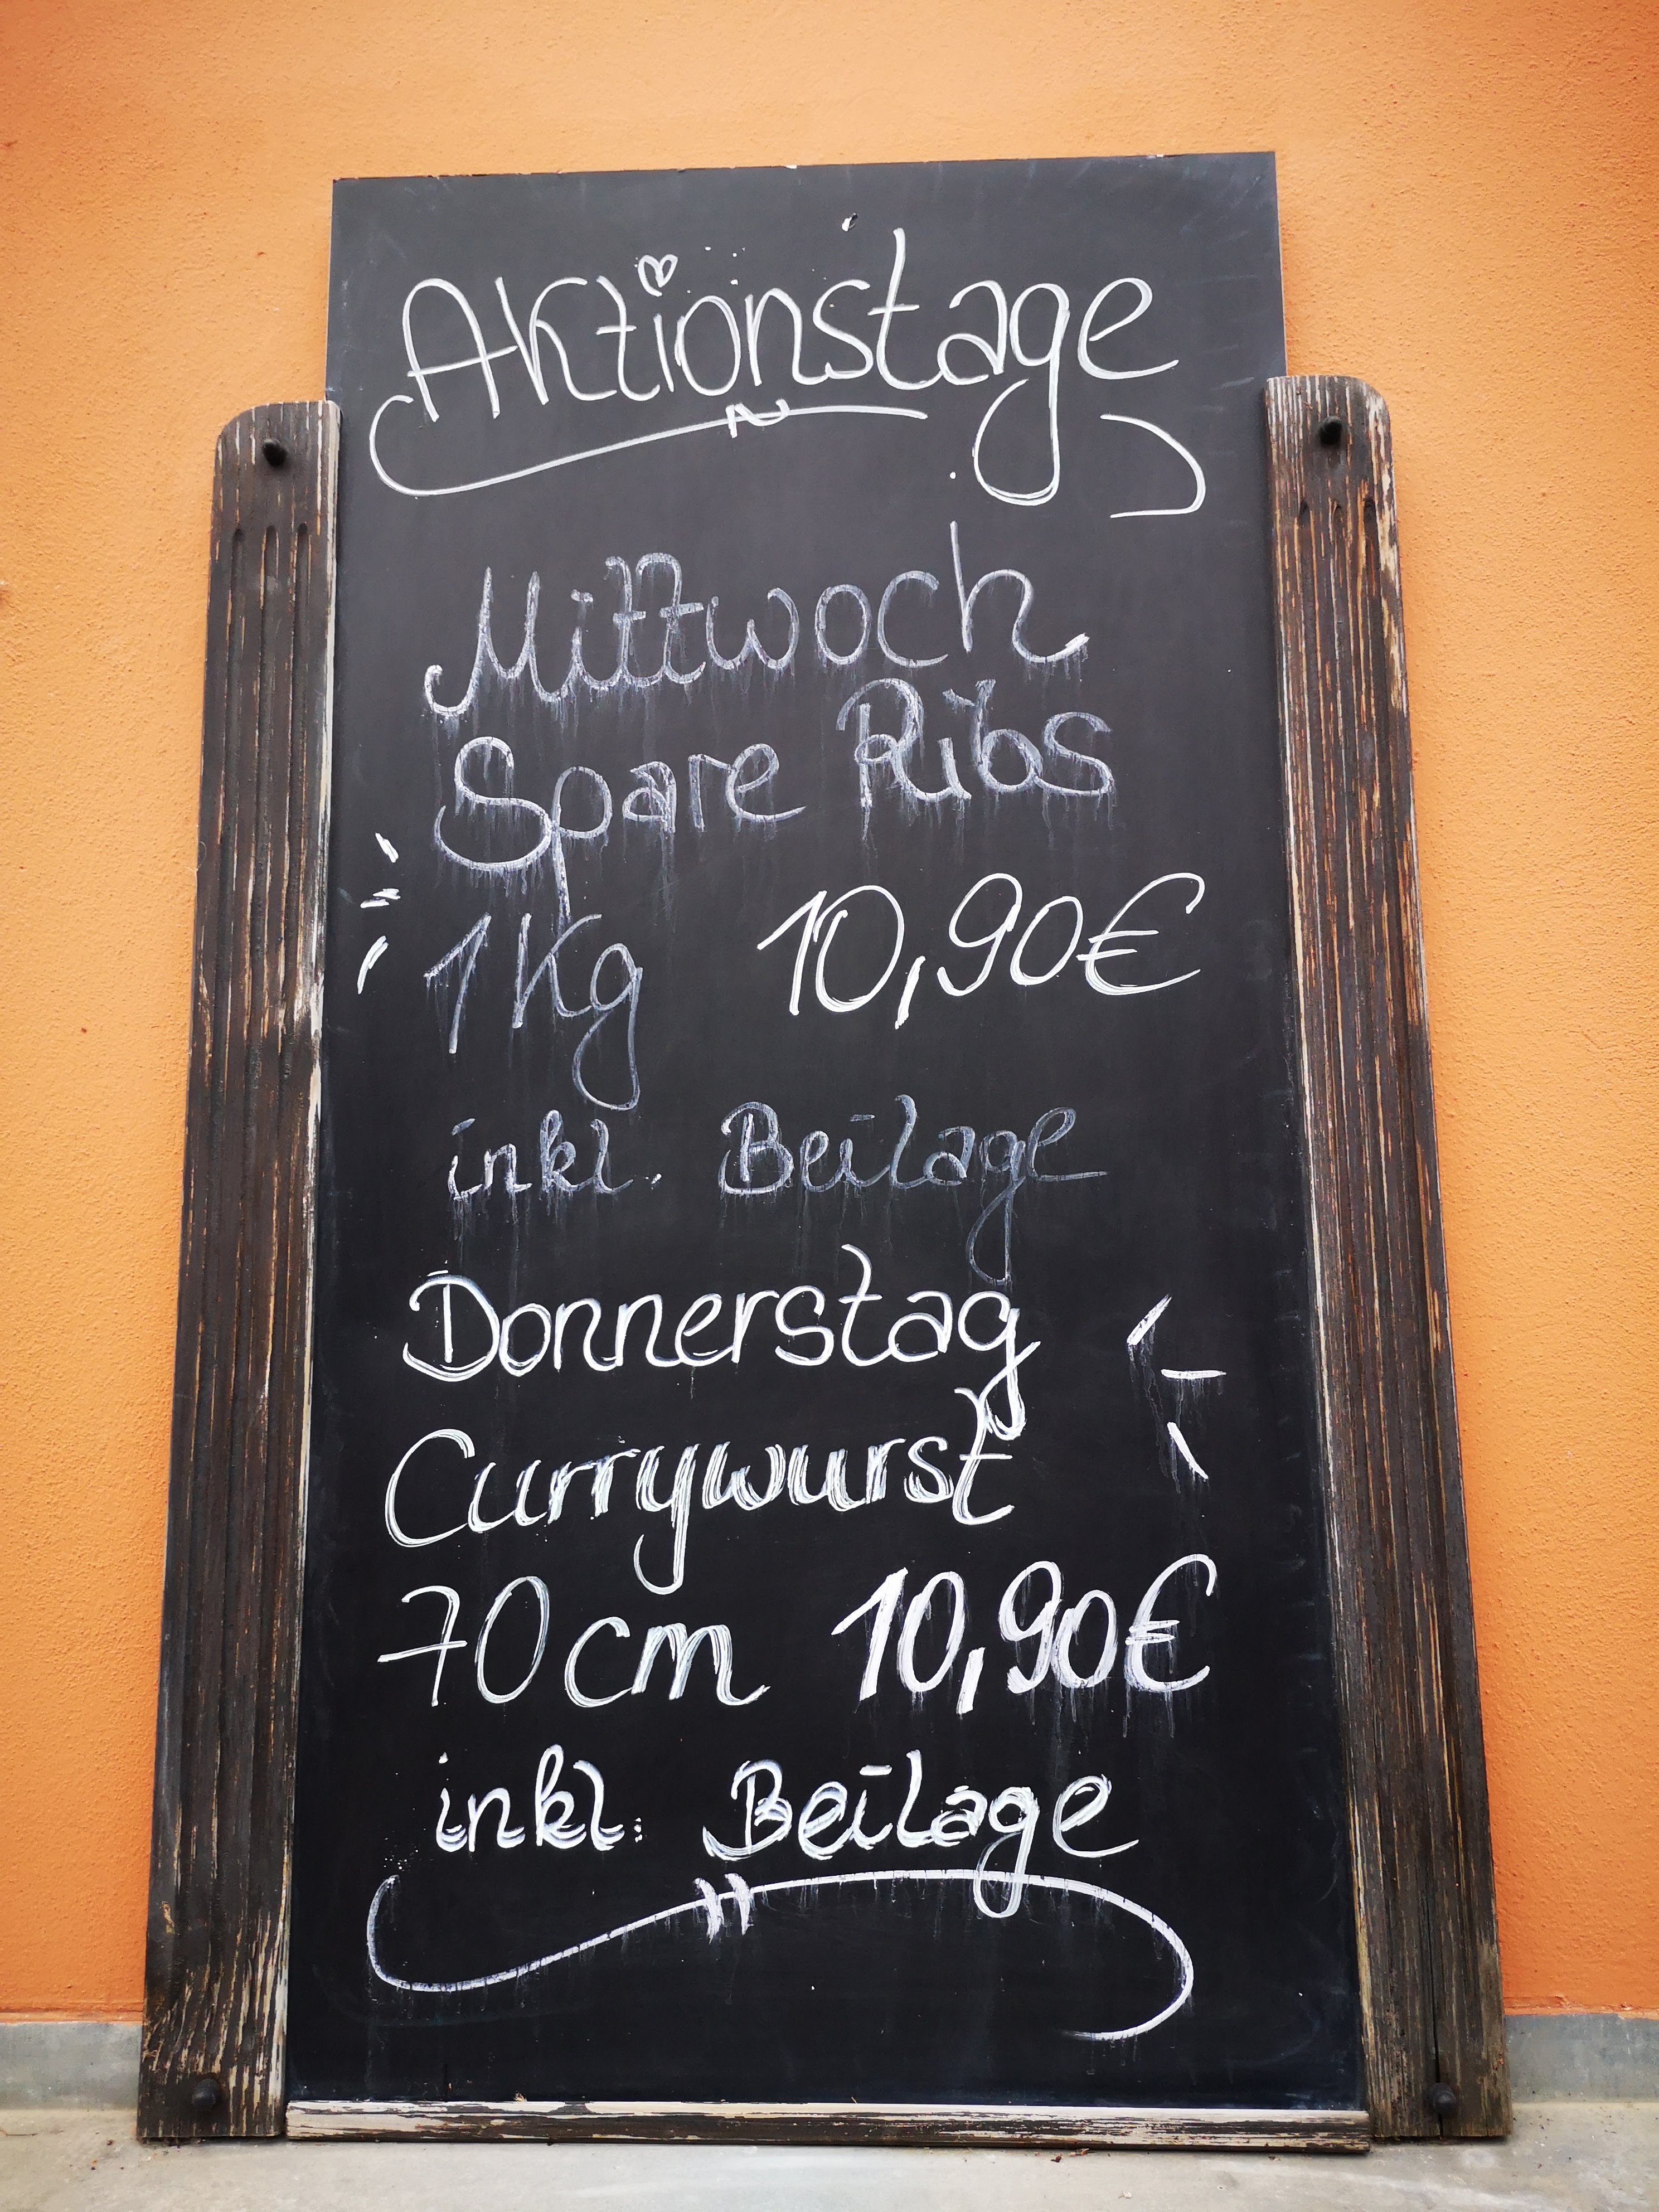 Aktionstage
Mittwoch
Spare Ribs
1Kg 10,90€
inkl. Beilage
Donnerstag
Currywurst
70cm 10,90€
inkl. Beilage